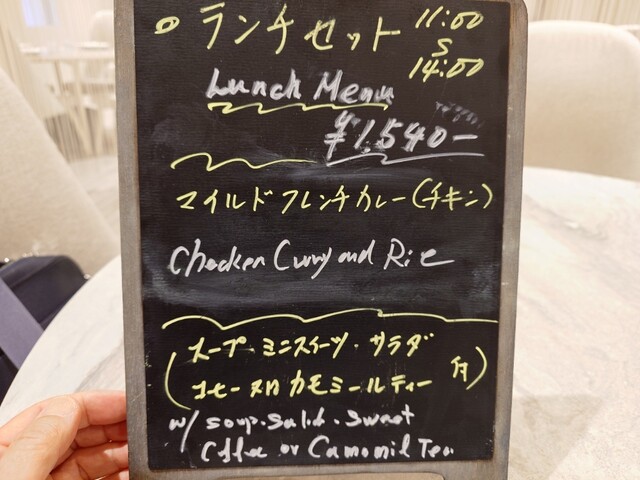 ○ ランチセット 11:00
S
14:00
Lunch Menu
¥1,540-
マイルドフレンチカレー(チキン)
Checken Curry and Rice
(スープ・ミニスイーツ・サラダ
コーヒー又はカモミールティー 付)
w/ soup.Salid.Sweet
Cffee or Camomil Tea